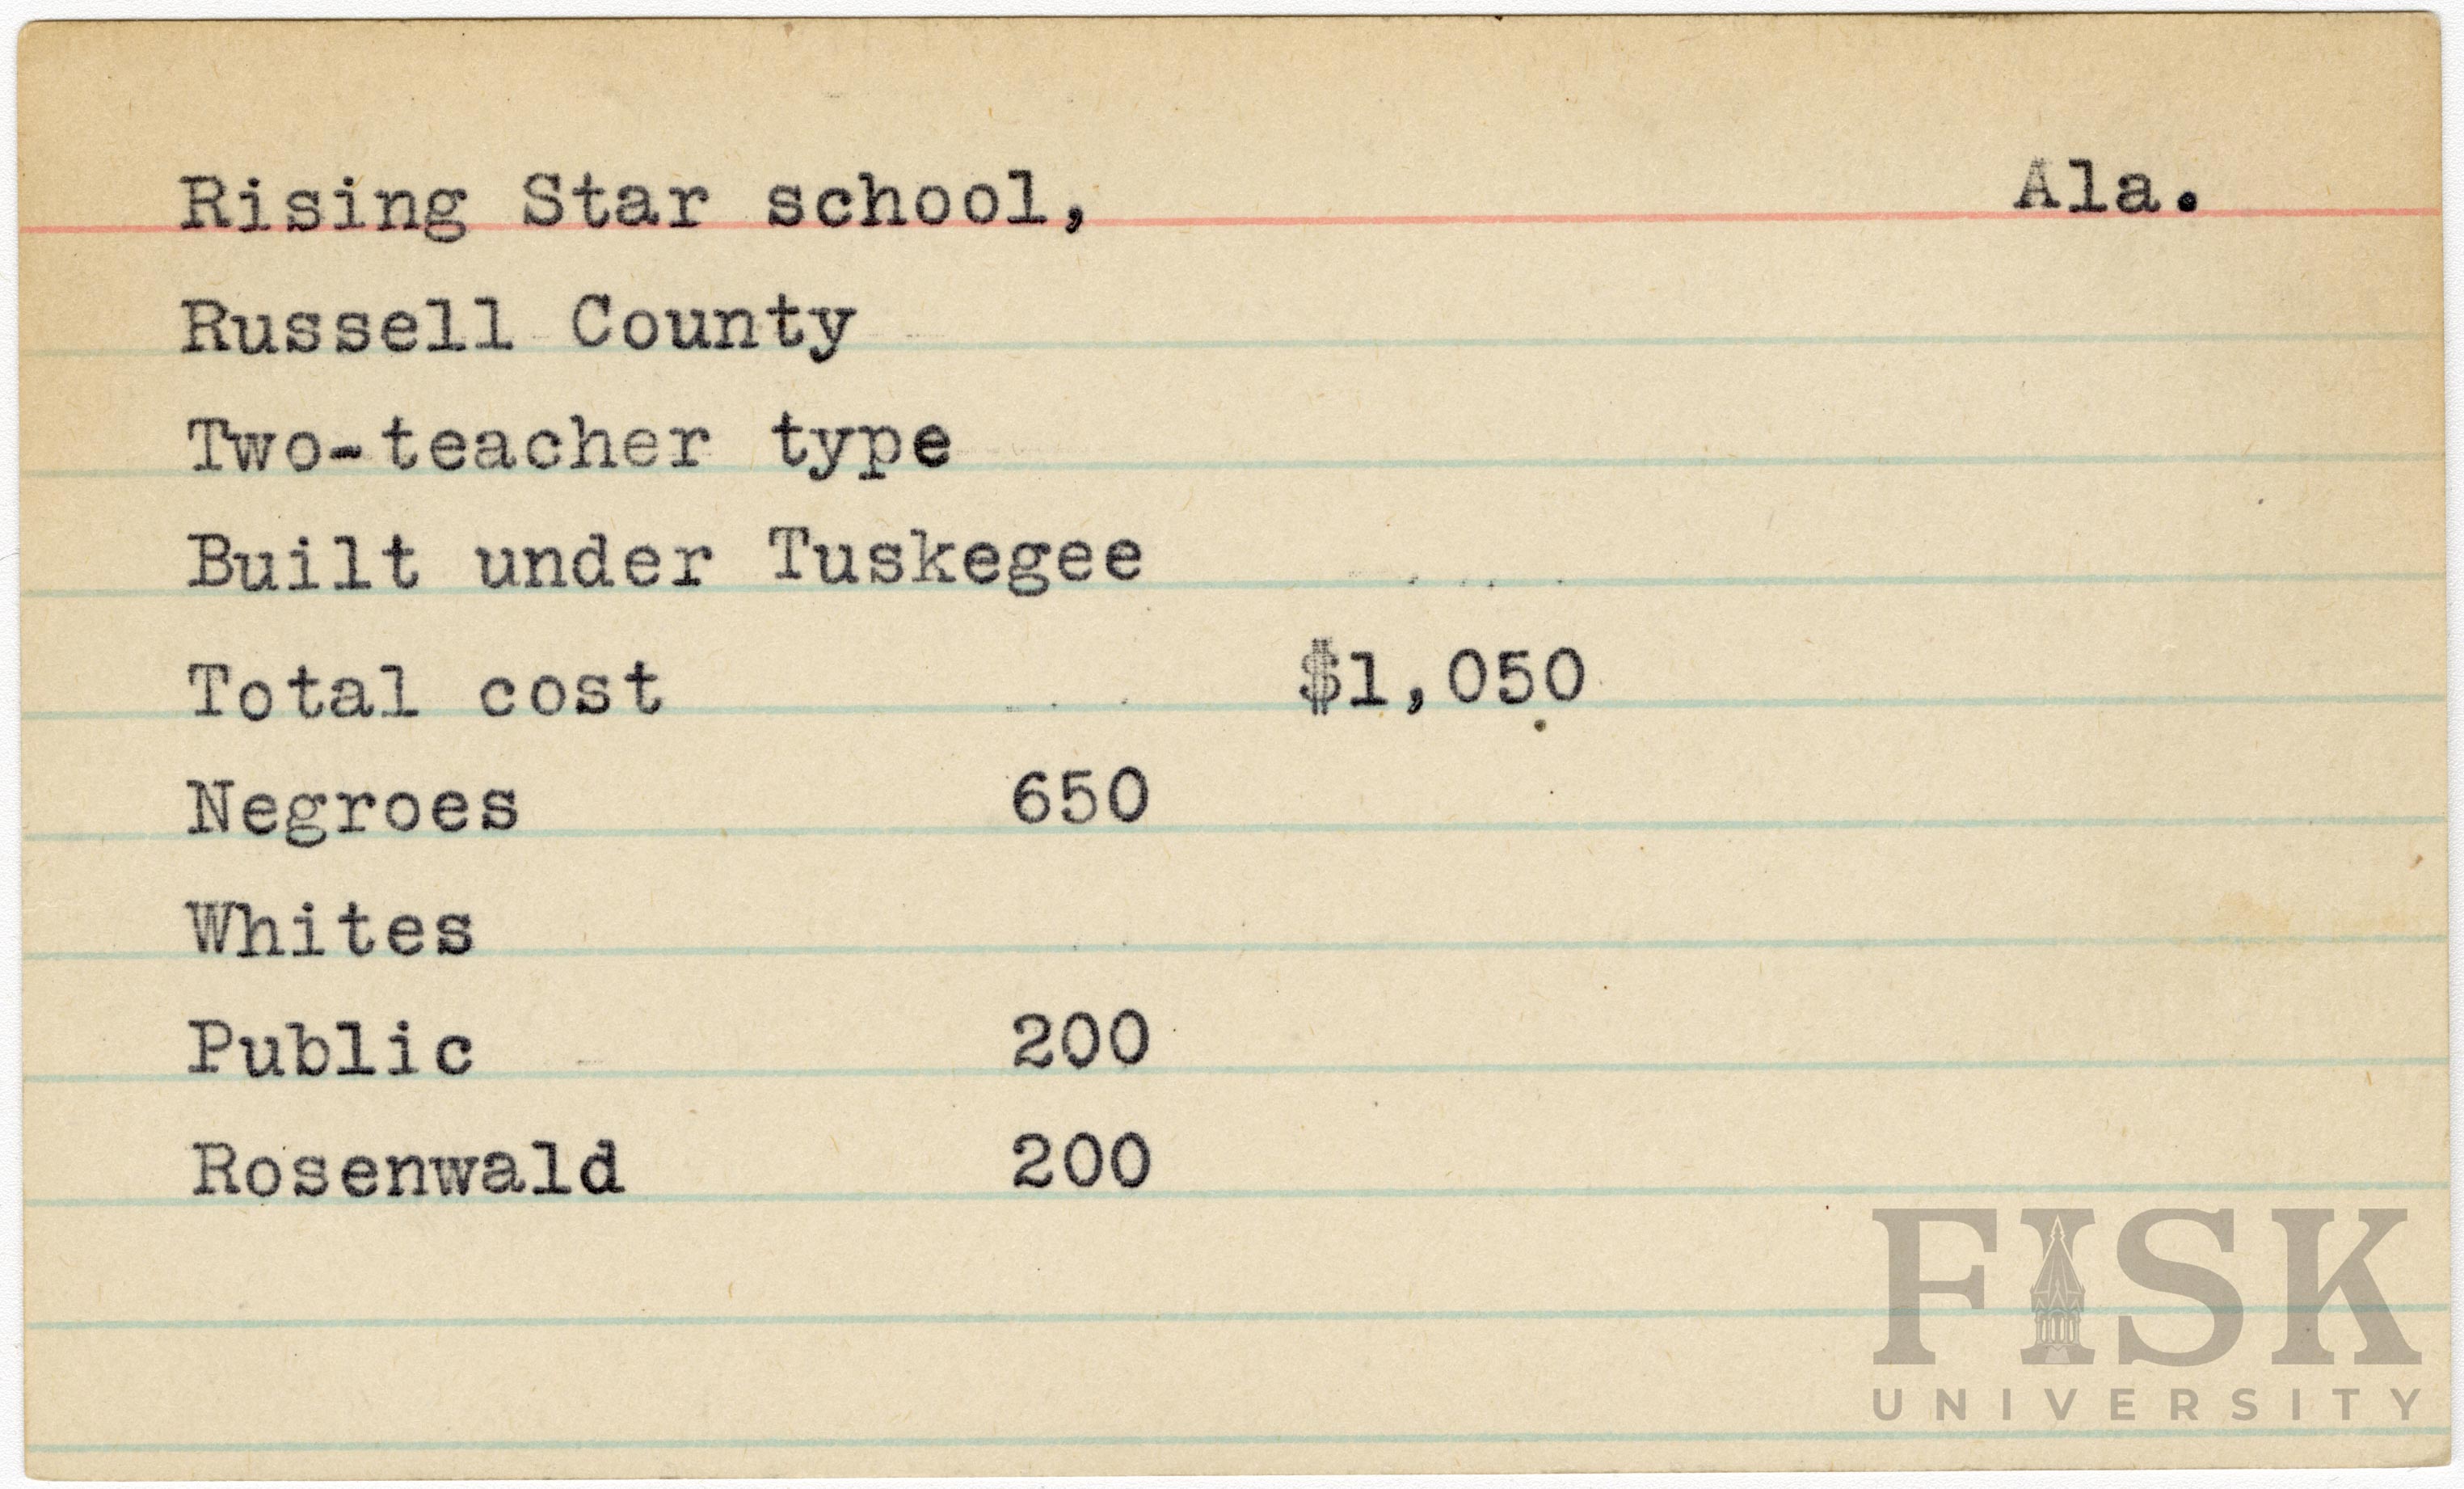 Rising Star school, Ala.
Russell County
Two-teacher type
Built under Tuskegee
Total cost $1,050
Negroes 650
Whites
Public 200
Rosenwald 200
FISK
UNIVERSITY